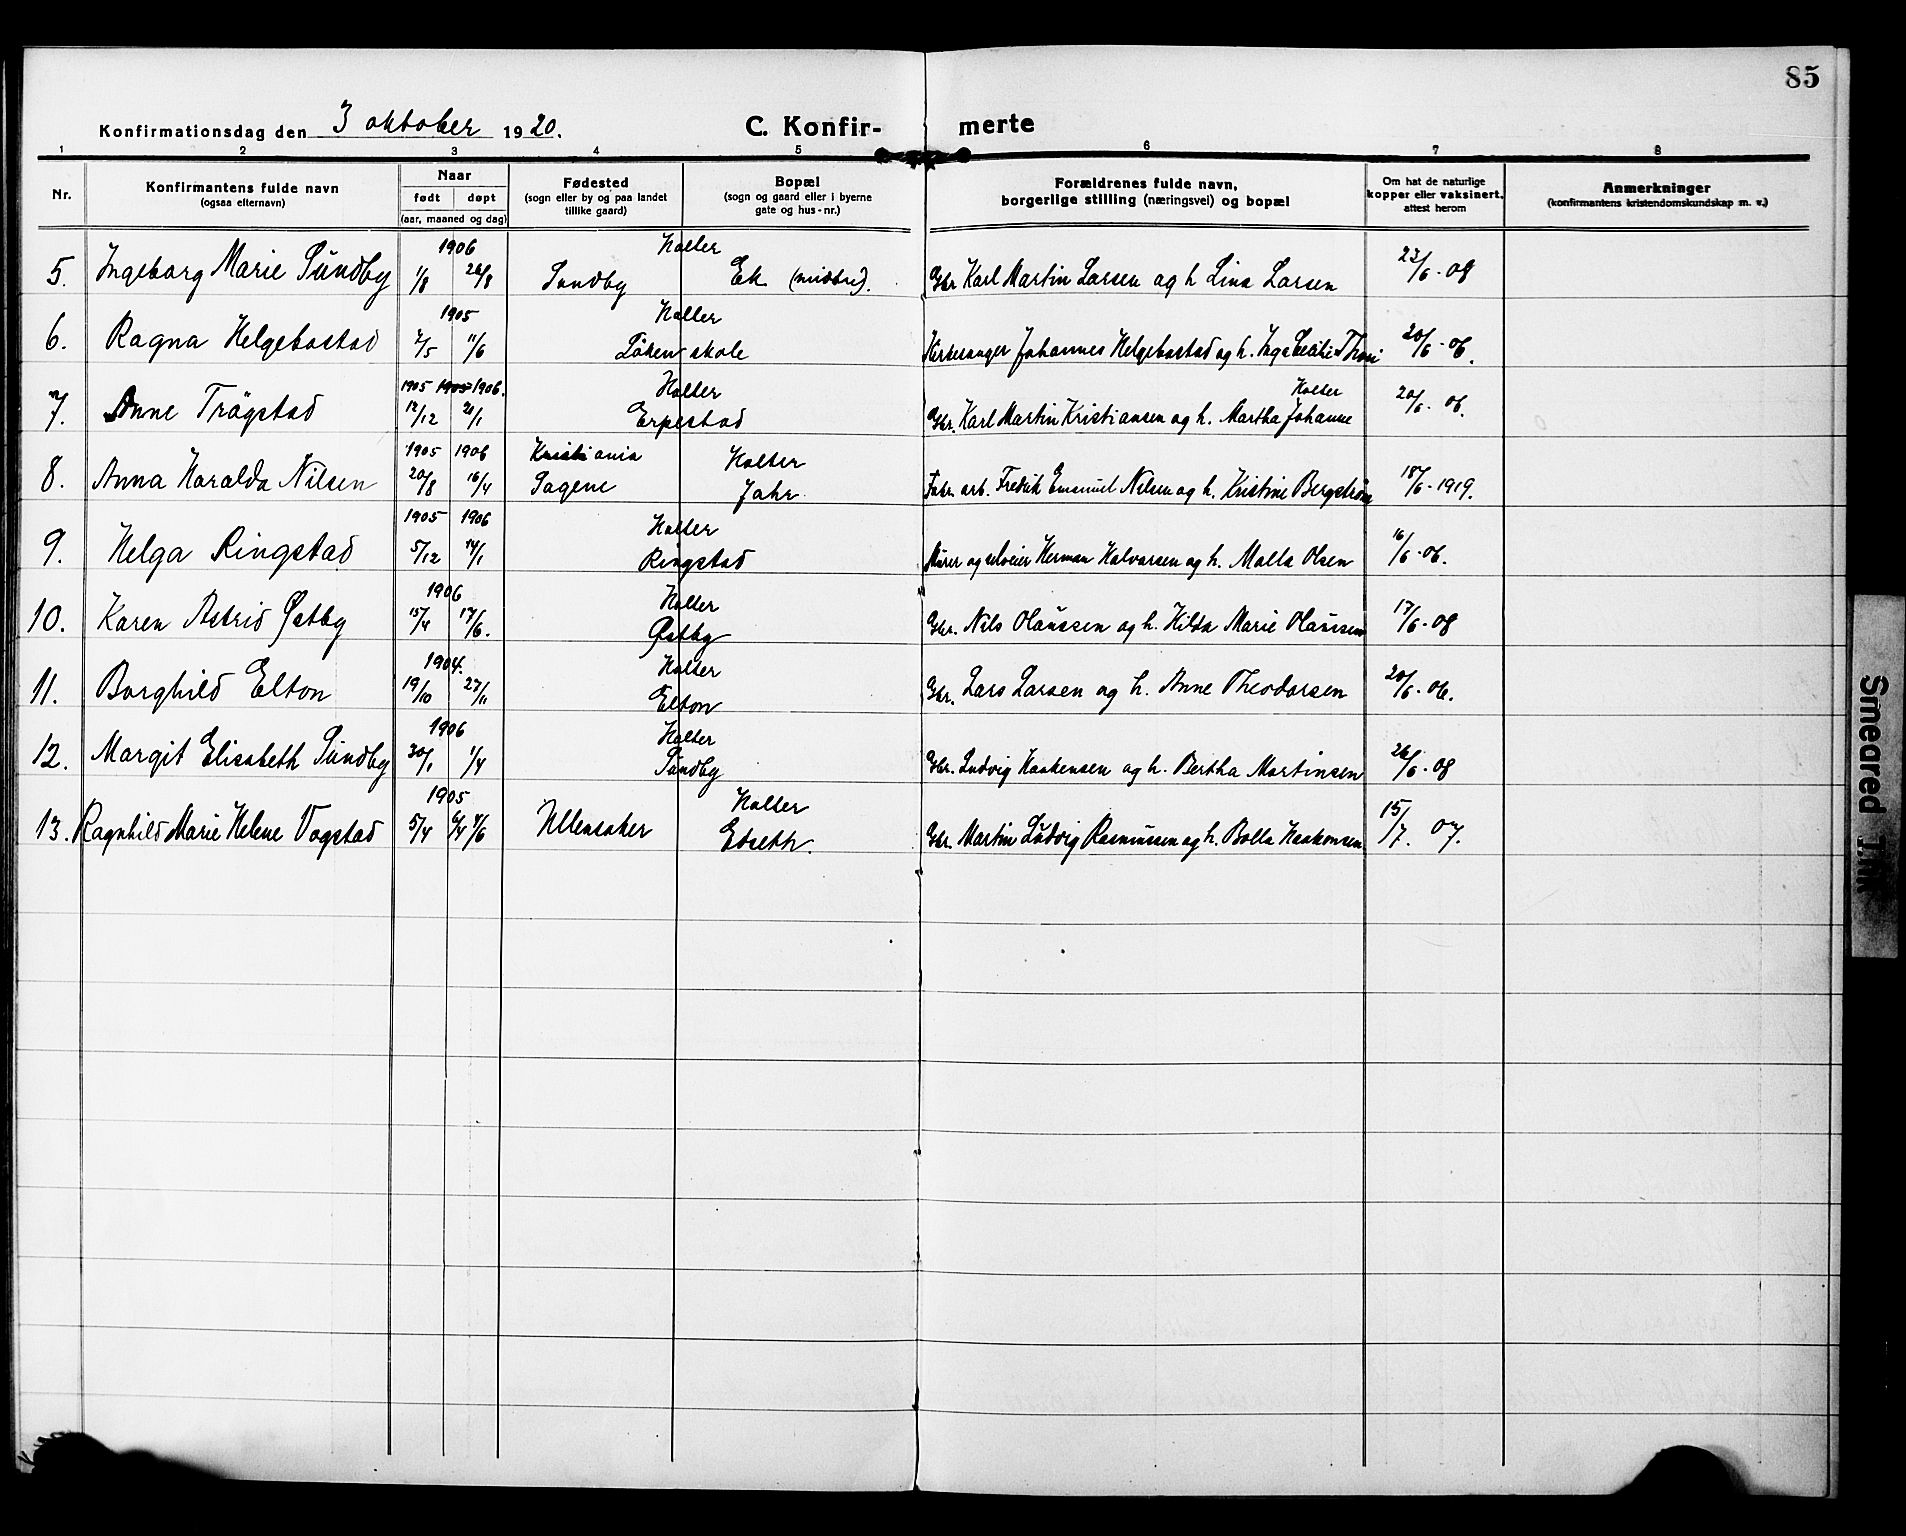 85
Konfirmationsdag den 3 oktober 1920.
C. Konfir- merte
1 2 3 4 5 6 7 8
Nr.
Konfirmantens fulde navn
(ogsaa efternavn)
Naar
født døpt
(aar, maaned og dag)
Fødested
(sogn eller by og paa landet
tillike gaard)
Bopæl
(sogn og gaard eller i byerne
gate og hus-nr.)
Forældrenes fulde navn,
borgerlige stilling (næringsvei) og bopæl
Om hat de naturlige
kopper eller vaksinert,
attest herom
Anmerkninger
(konfirmantens kristendomskundskap m. v.)
1906 Holter
5. Ingeborg Marie Sundby 1/8 26/8 Sundby Ek (midtre). Gbr Karl Martin Larsen og h Lina Larsen 23/6-08
1905 Holter
6. Ragna Helgebostad 2/5 11/6 Løken skole Kirkesanger Johannes Helgebostad og h. Inga Cecilie 20/6-06.
1905 1905 1906. Holter Holter
7. Anne Trøgstad 12/12 21/1 Erpestad Gbr. Karl Martin Kristiansen og h. Martha Johanne 20/6-06.
1905 1906 Kristiania Holter
8. Anna Haralda Nilsen 20/8 16/4 Sagene Jahr Fabr. arb. Fredrik Emanuel Nilsen og h. Kristine Bergstrøm 18/6-1919.
1905 1906 Holter
9. Helga Ringstad 5/12 14/1 Ringstad Murer og selveier Herman Halvorsen og h. Malla Olsen 16/6-06.
1906 Holter
10. Karen Astrid Østby 15/4 17/6. Østby Gbr. Nils Olaussen og h. Hilda Marie Olaussen 17/6-08
1904. Holter
11. Borghild Elton 19/10 27/11 Elton Gbr. Lars Larsen og h. Anne Theodorsen 20/6-06.
1906 Holter
12. Margit Elisabeth Sundby 30/1 1/4 Sundby Gbr. Ludvig Haakensen og h. Bertha Martinsen 26/6-08
1905 Holter
13. Ragnhild Marie Helene Vogstad 5/4 Ullensaker Edseth. Gbr. Martin Ludvig Rasmussen og h. Bolla Haakonsen 15/7. 07.
Smeared INK